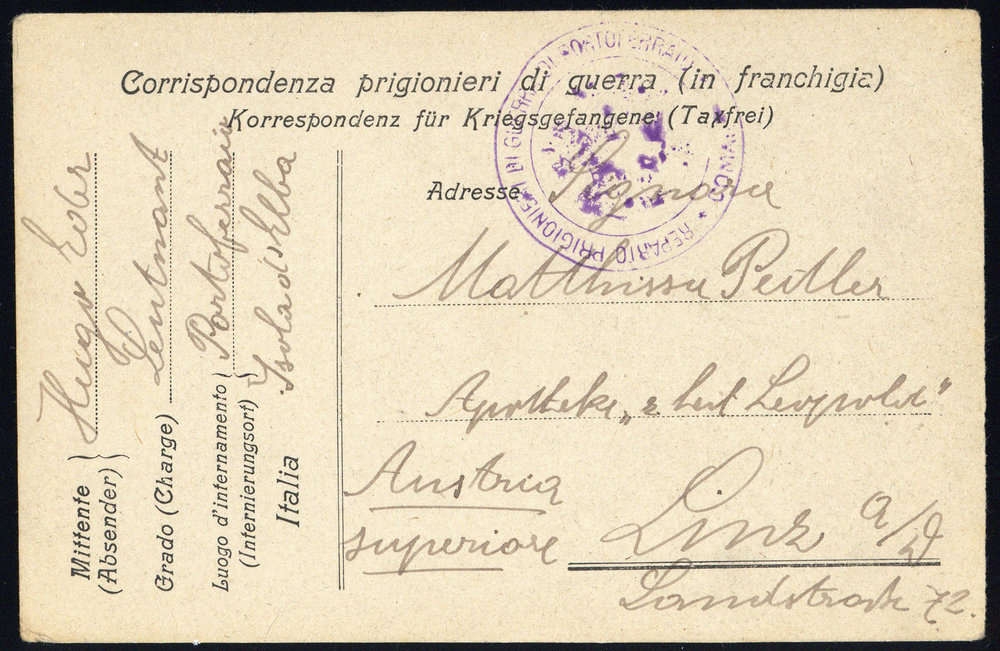 Corrispondenza prigionieri di guerra (in franchigia)
Korrespondenz für Kriegsgefangene (Taxfrei)
REPARTO PRIGIONIERI DI GUERRA DI PORTOFERRAIO
Adresse Signore
Pedler
Apotheke „z heil Leopold“
Austria
superiore
Linz a/D
Landstraße 72.
Mittente
(Absender)
Hugo Eder
Grado (Charge)
Leutnant
Luogo d'internamento
(Internierungsort)
Portoferraio
Isola d'Elba
Italia